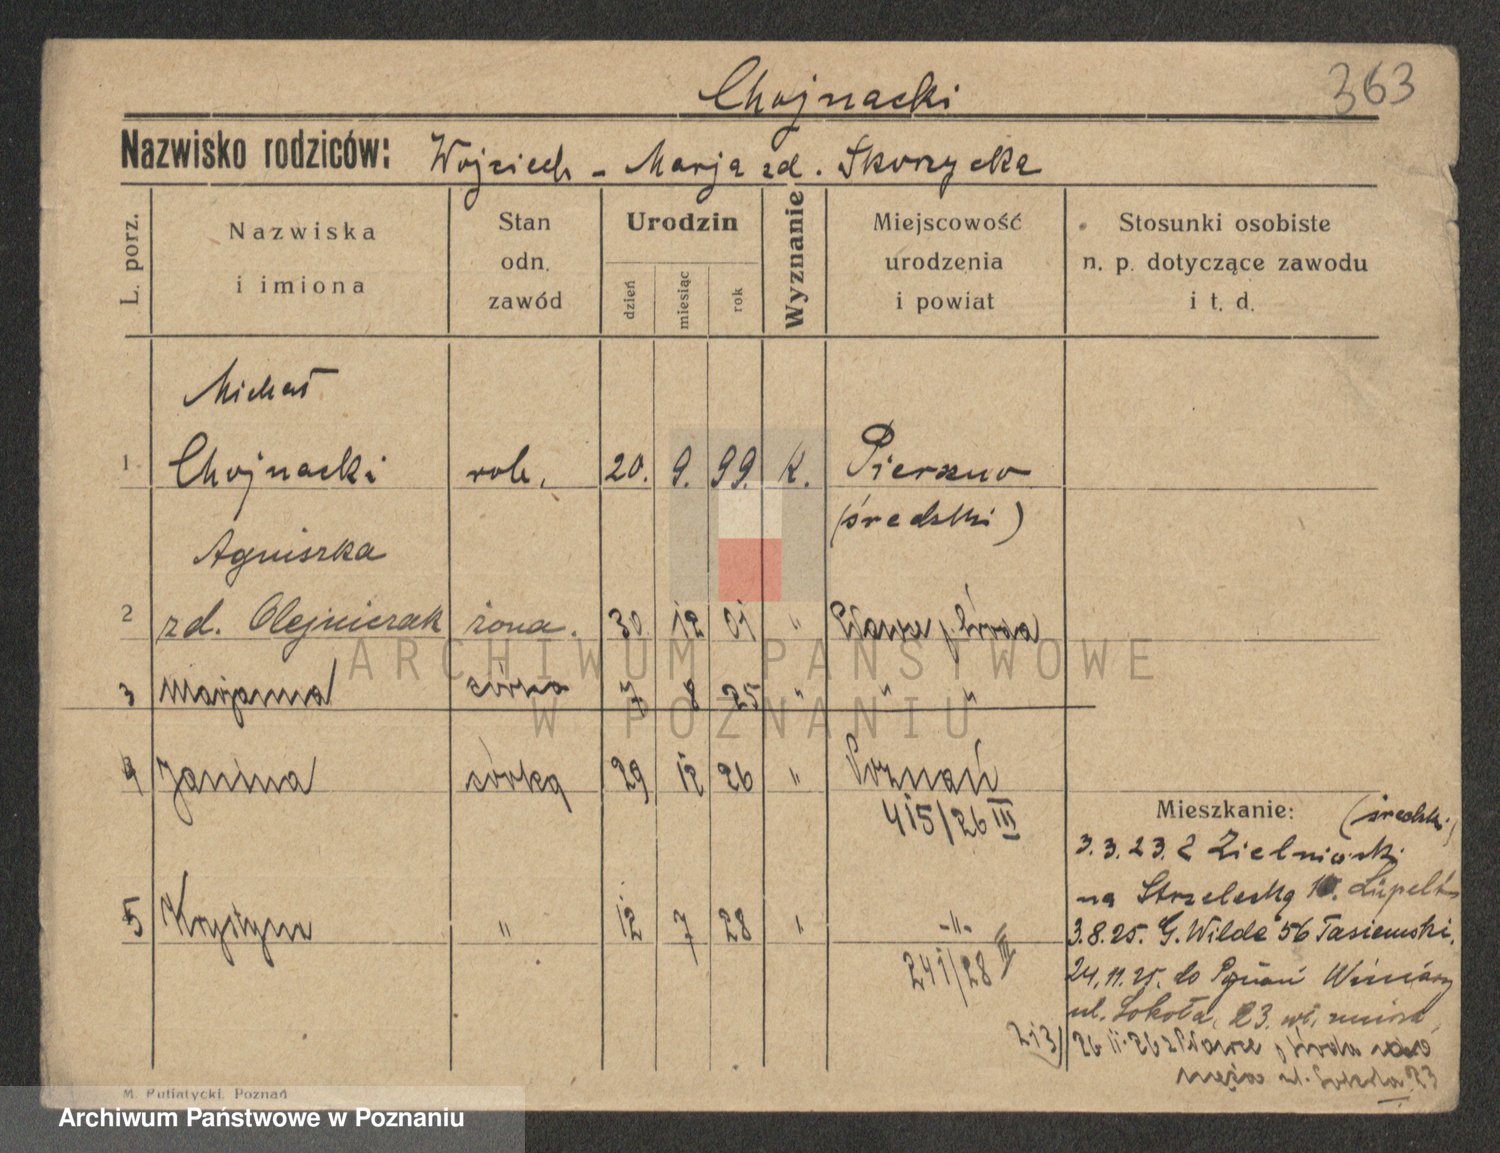 Chojnacki
363
Nazwisko rodziców: Wojciech - Marja zd. Skorzycka
L. porz.
Nazwiska
i imiona
Stan
odn.
zawód
Urodzin
dzień
miesiąc
rok
Wyznanie
Miejscowość
urodzenia
i powiat
Stosunki osobiste
n. p. dotyczące zawodu
i t. d.
Michał
1 Chojnacki rob. 20. 9. 99. K. Pierzno
(średzki)
Agniszka
2 zd. Olejniczak żona. 30 12 01 " Pławce p. Środa
3 Marjanna córka 7 8 25 " " "
4 Janina córka 29 12 26 " Poznań
415/26 III
5 Krystyna " 12 7 28 " -"-
241/28 III
Mieszkanie: (średzki)
3.3.23. z Zielniczki
na Strzelecką
3.8.25. G. Wilde 56 Tasiemski.
24.11.25. do Poznań Winiary
ul. Sokoła, 23.
213/
26 11. 26 z Pławce p. Środa
męża ul. Sokoła 23
M. Putiatycki, Poznań
ARCHIWUM PAŃSTWOWE
W POZNANIU
Archiwum Państwowe w Poznaniu